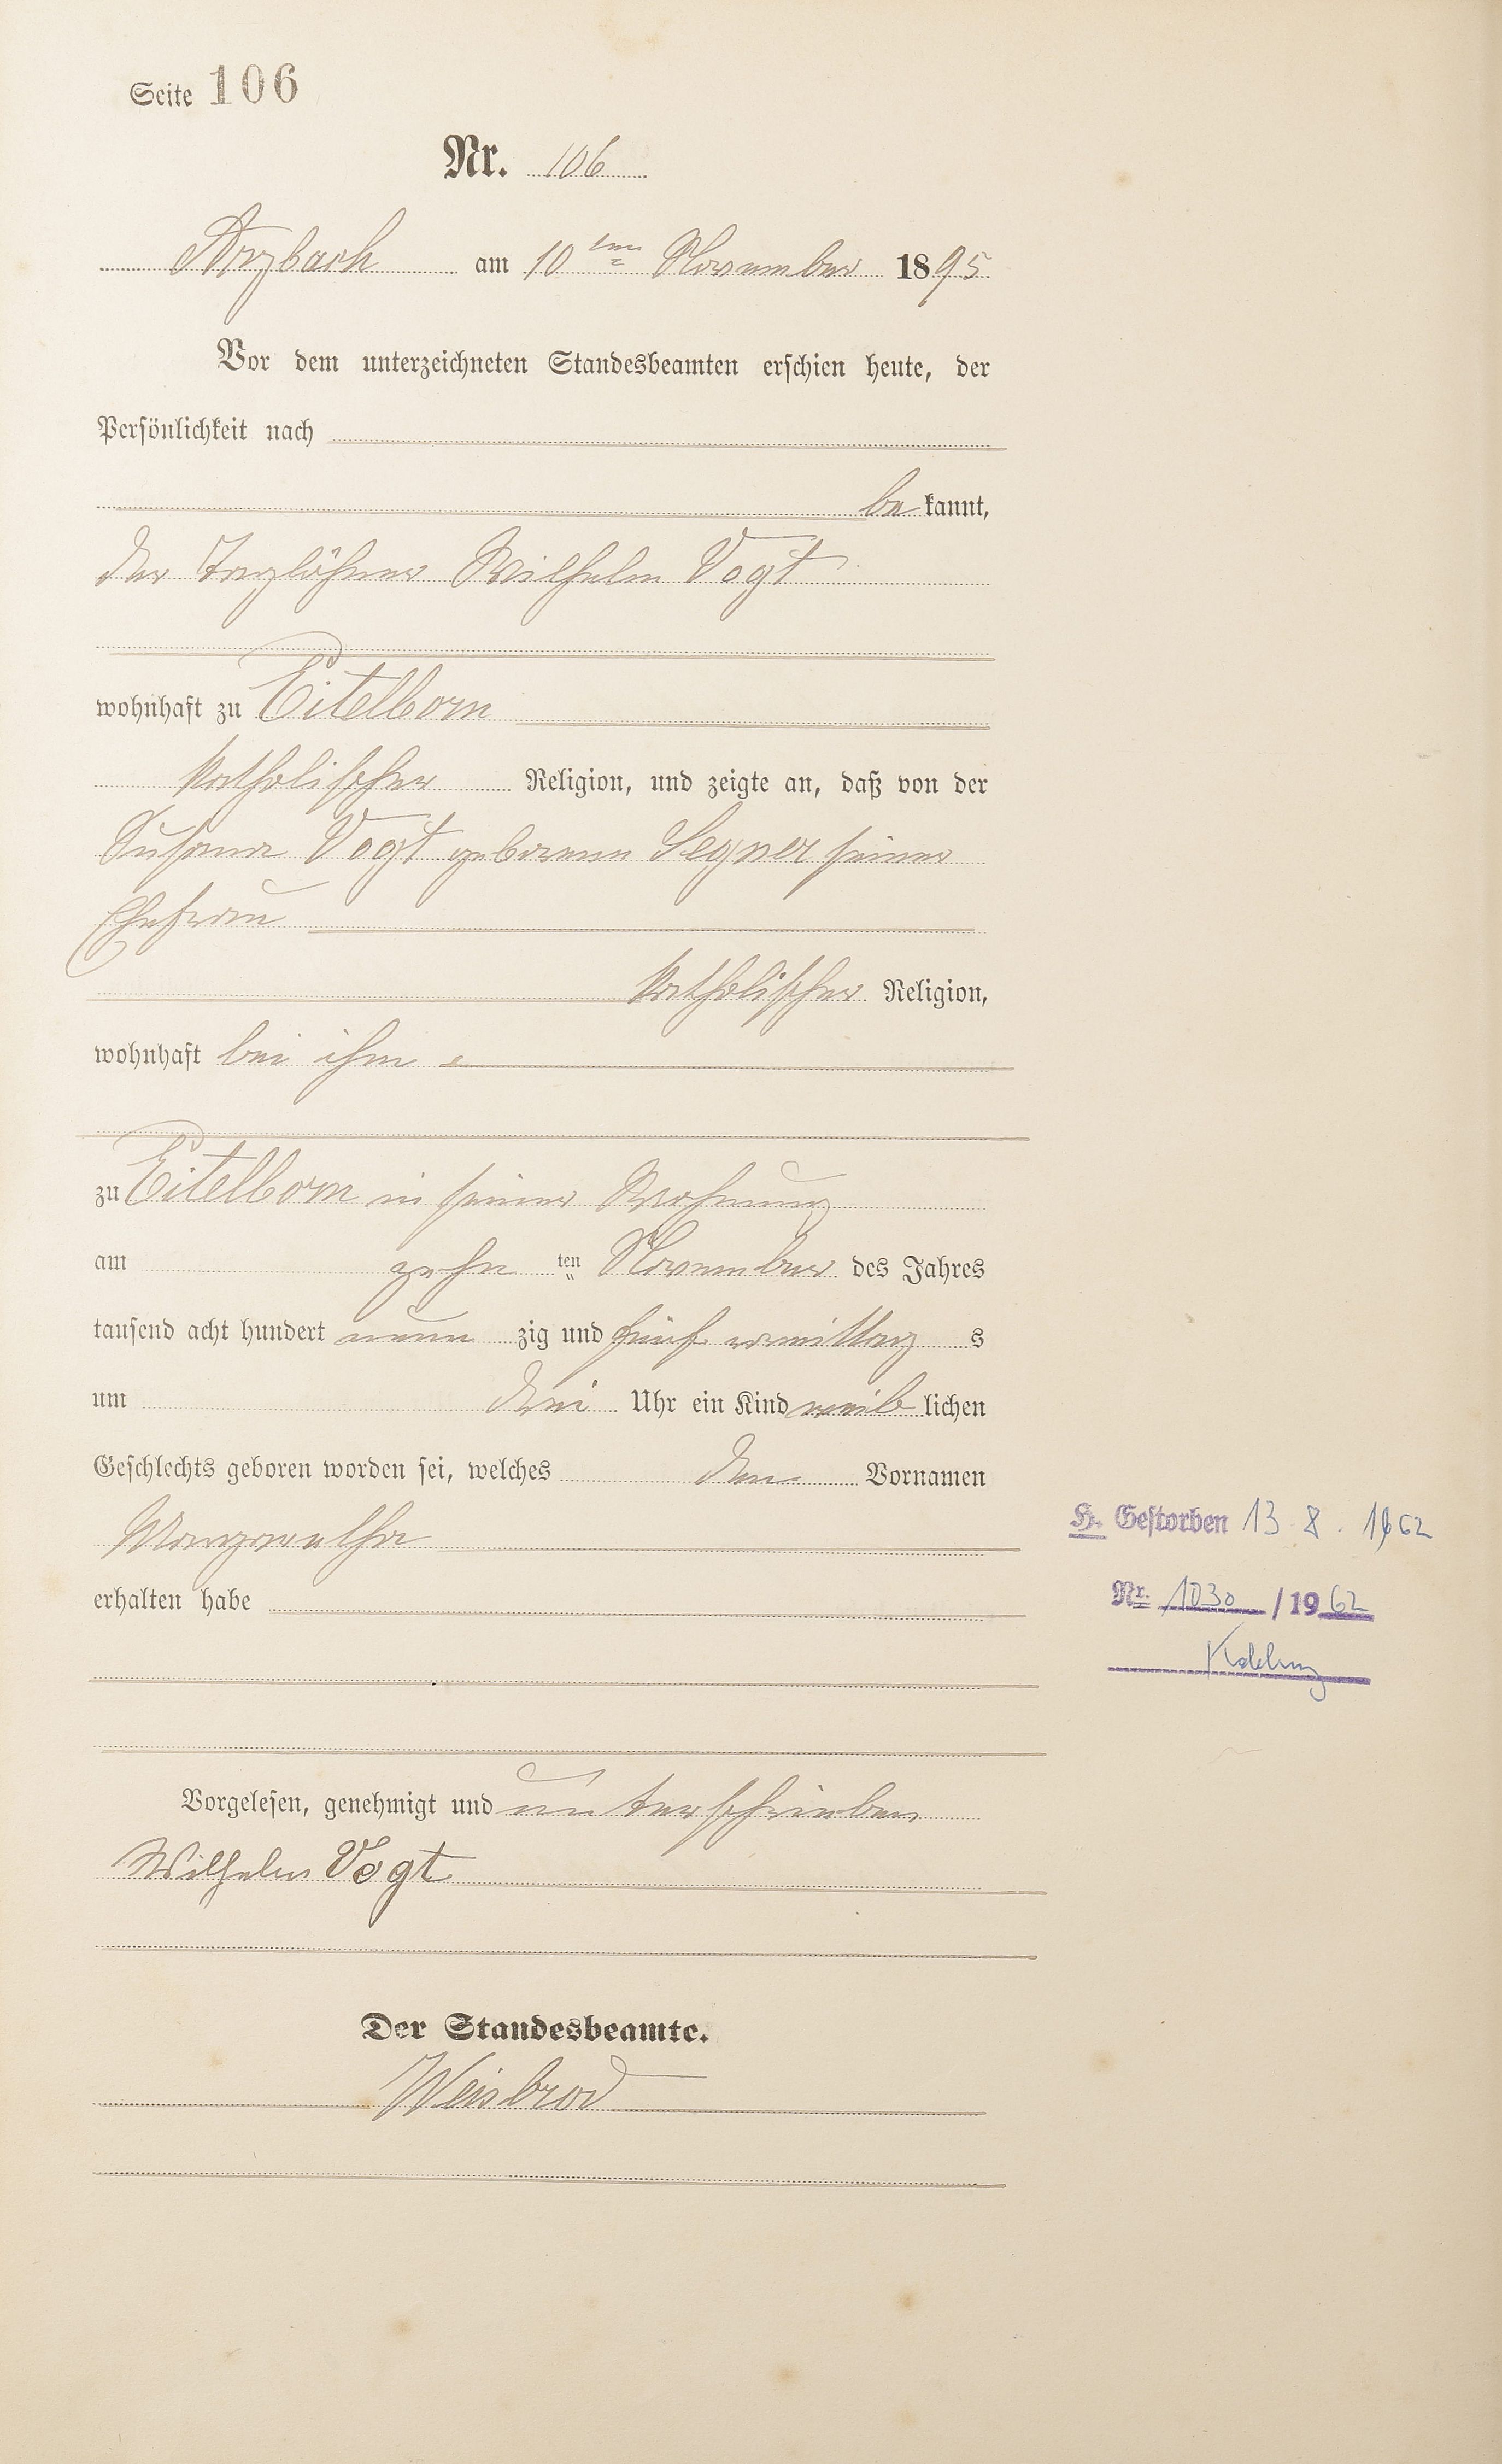 Seite 106
Nr. 106
Arzbach am 10ten November 1895
Vor dem unterzeichneten Standesbeamten erschien heute, der
Persönlichkeit nach
bekannt,
der Taglöhner Wilhelm Vogt
wohnhaft zu Eitelborn
katholischer Religion, und zeigte an, daß von der
Susana Vogt geborene Segner seiner
Ehefrau
katholischer Religion,
wohnhaft bei ihm
zu Eitelborn in seiner Wohnung
am zehn ten November des Jahres
tausend acht hundert neun zig und fünf vormittag s
um drei Uhr ein Kind weiblichen
Geschlechts geboren worden sei, welches den Vornamen
Margaretha
erhalten habe
Vorgelesen, genehmigt und unterschrieben
Wilhelm Vogt
Der Standesbeamte.
Weisbrod
H. Gestorben 13.8.1962
Nr. 1030/1962
Koblenz